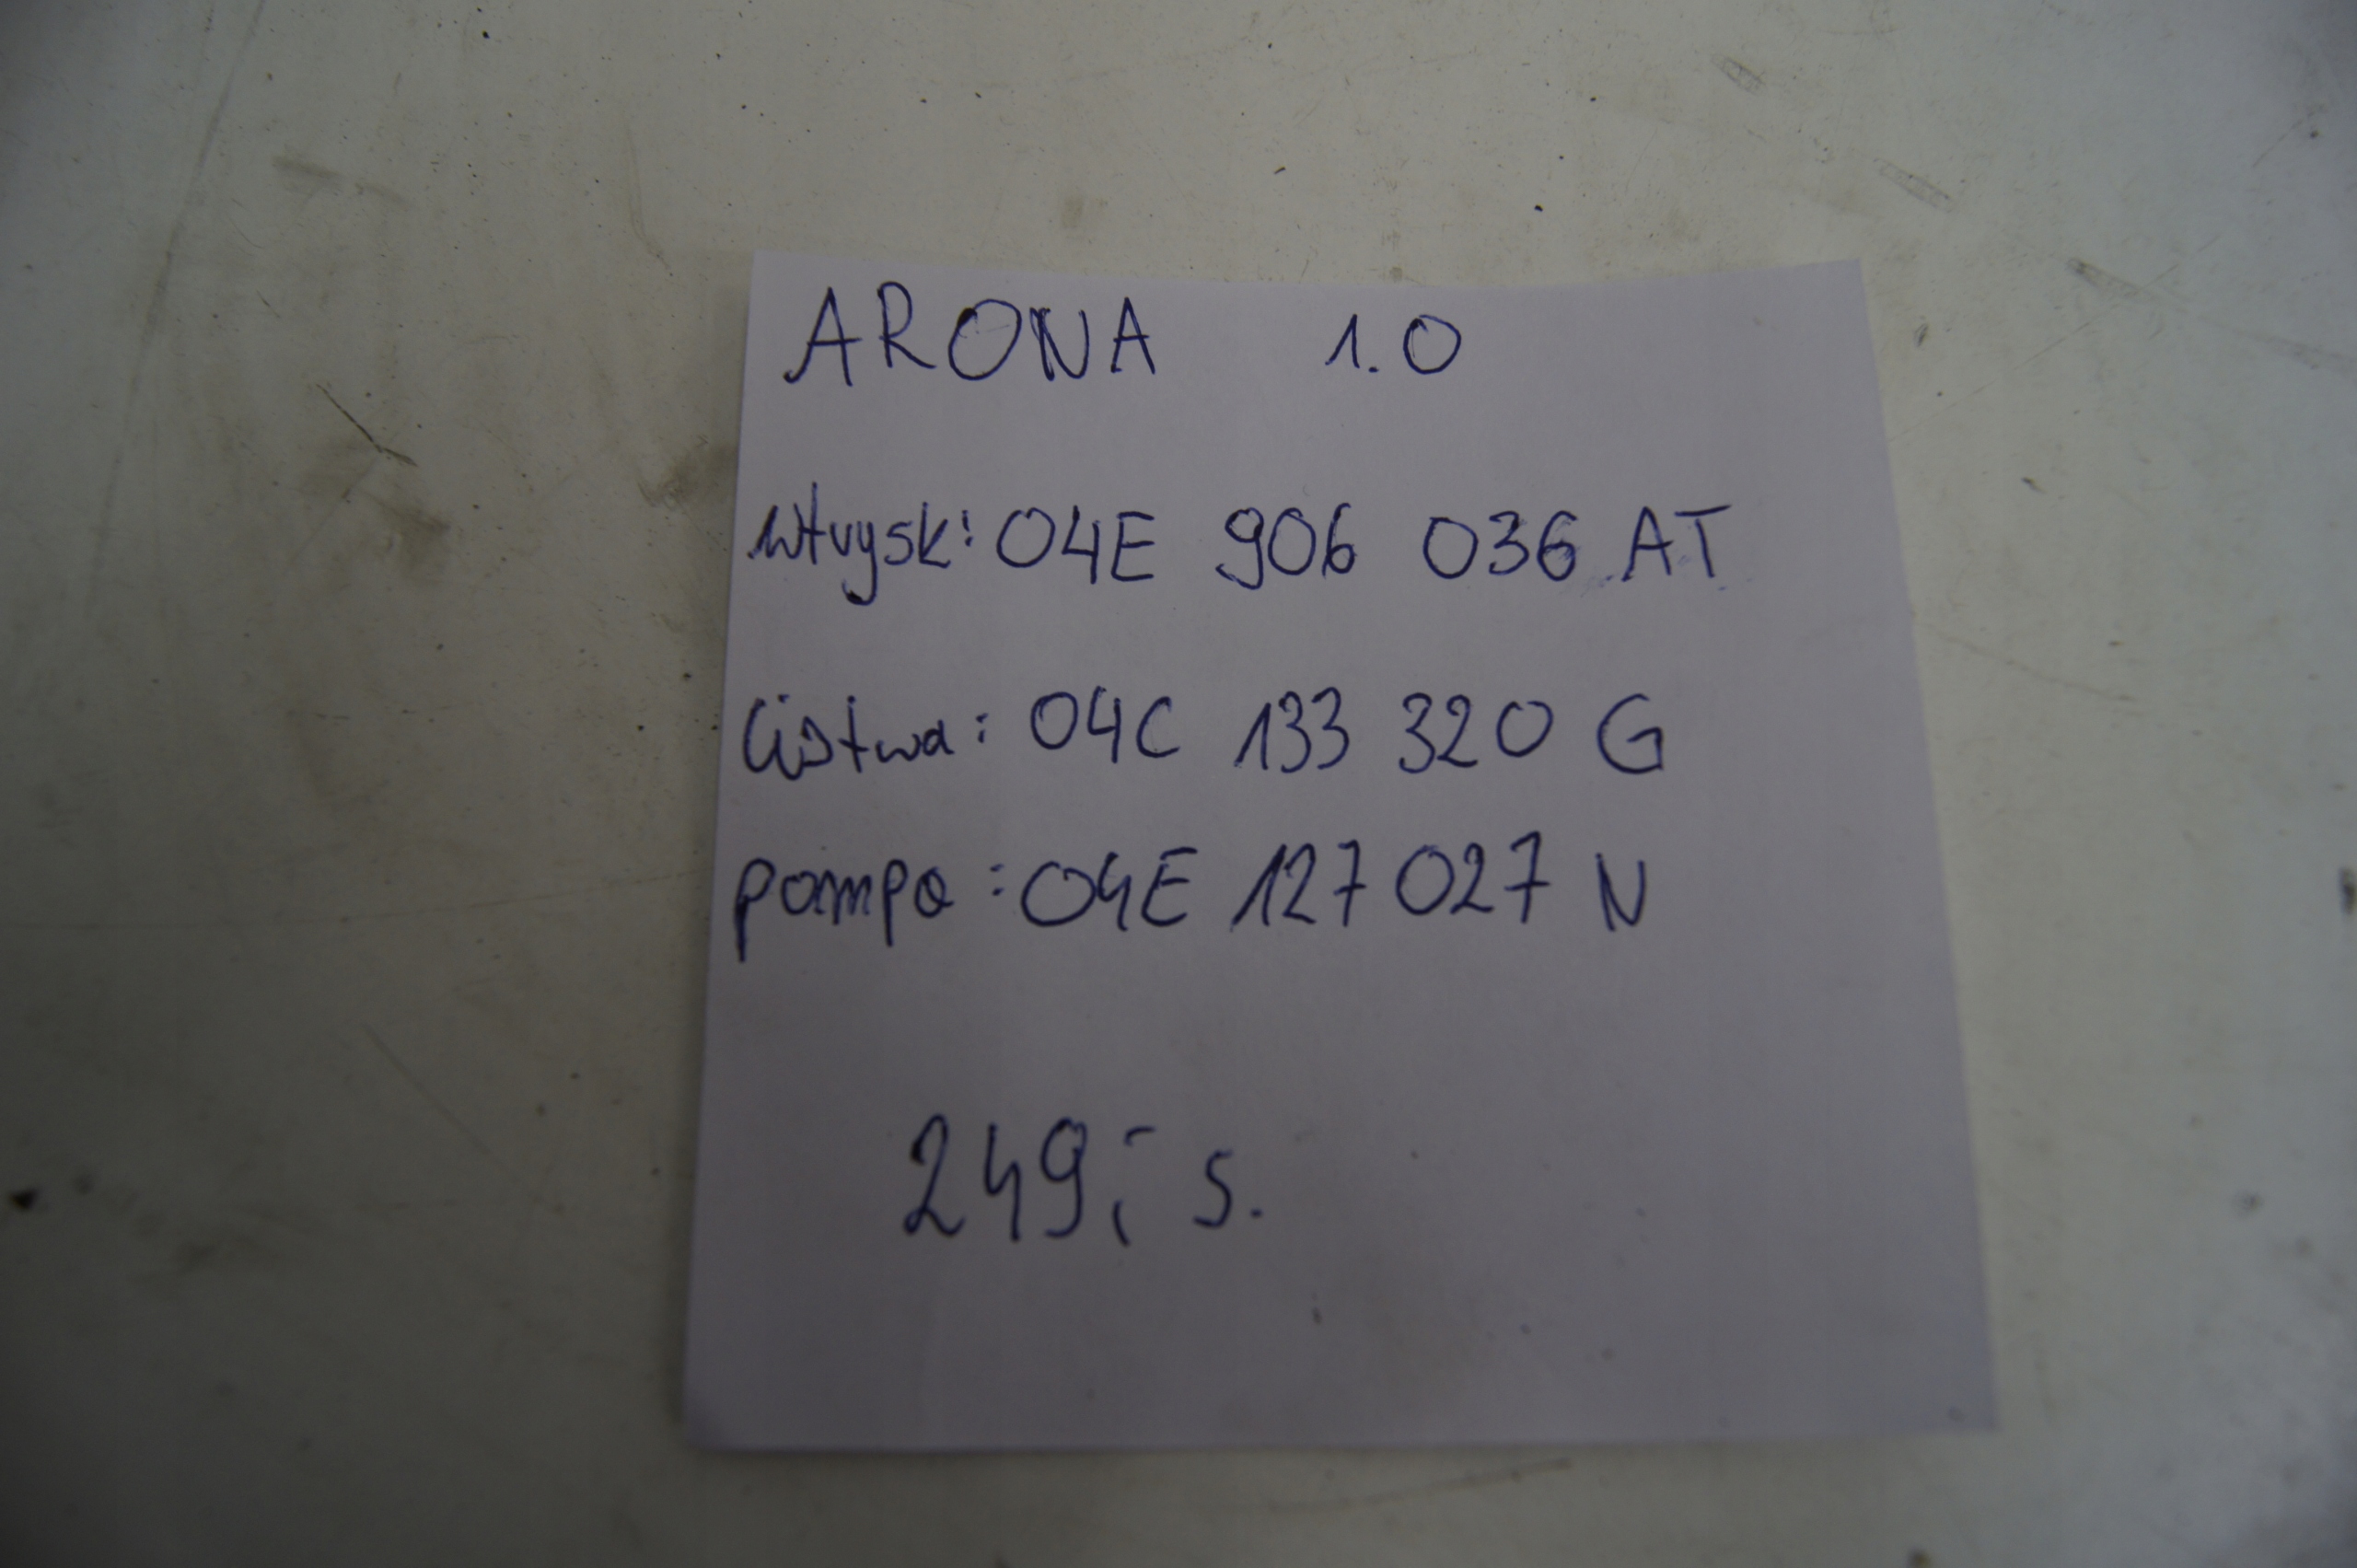 ARONA 1.0
wtrysk: 04E 906 036 AT
listwa: 04C 133 320 G
pompa: 04E 127 027 N
249,- s.